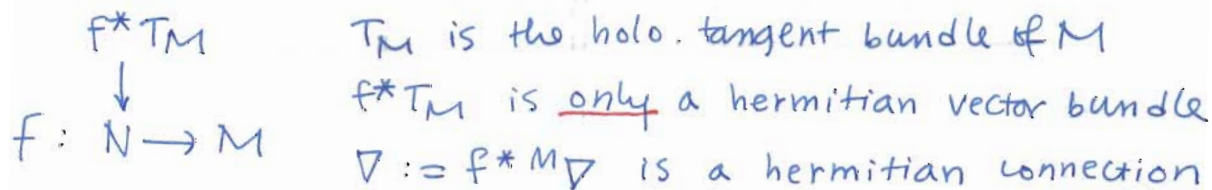 f* T_M T_M is the holo. tangent bundle of M
↓ f* T_M is only a hermitian vector bundle
f : N → M ∇ := f* ᴹ∇ is a hermitian connection